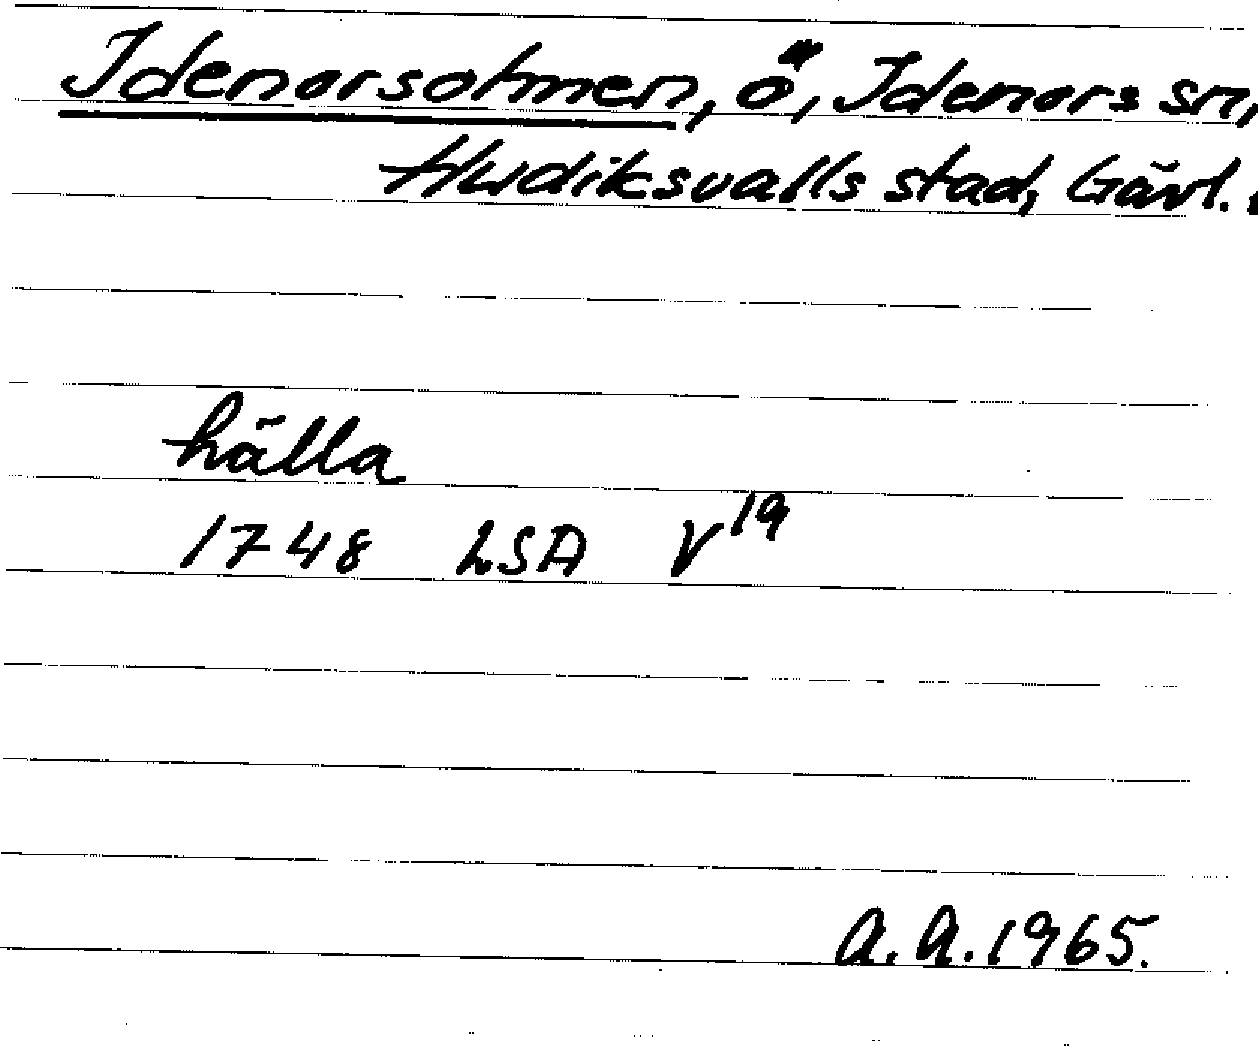 Idenorsholmen, ö, Idenors sn,
Hudiksvalls stad, Gävl.
hälla
1748 LSA V19
A.A.1965.